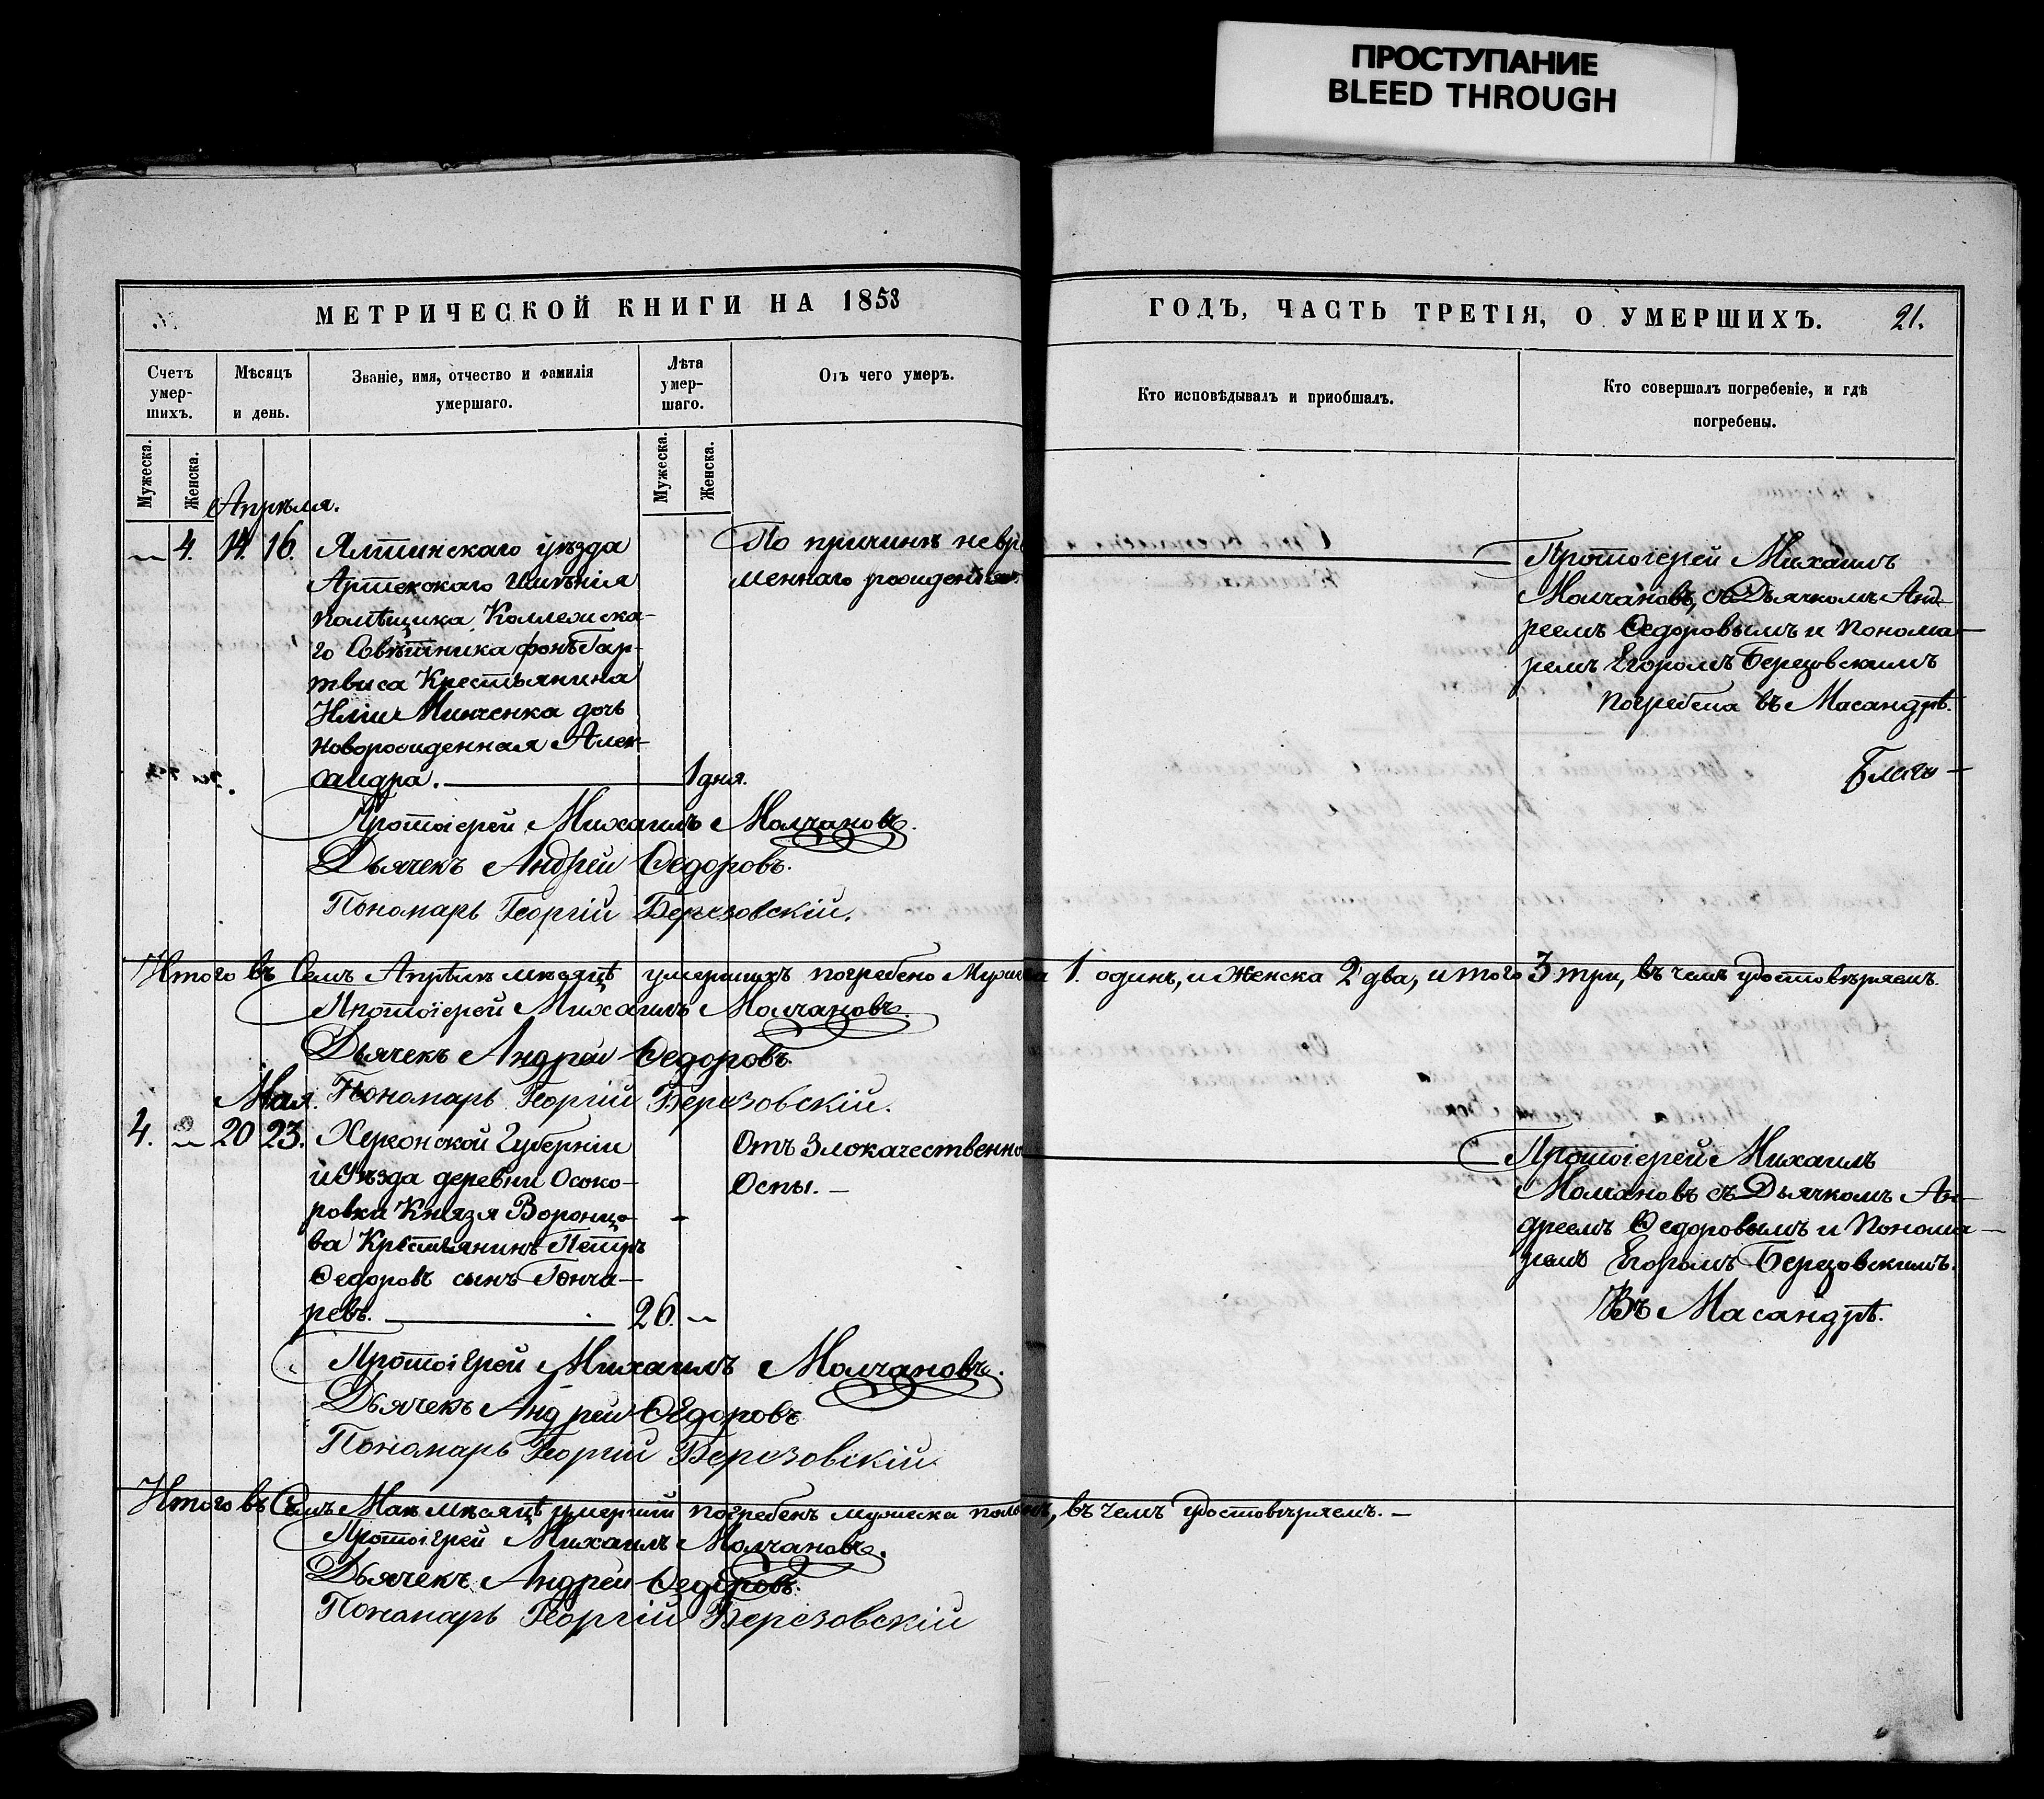 ПРОСТУПАНИЕ
BLEED THROUGH
МЕТРИЧЕСКОЙ КНИГИ НА 1853
Счетъ умер-шихъ.
Мѣсяцъ и день.
Званіе, имя, отчество и фамилія умершаго.
Лѣта умер-шаго.
Отъ чего умеръ.
Мужеска.
Женска.
Мужеска.
Женска.
Апрѣля.
4. 14. 16. Ялтинскаго уѣзда
Артекскаго Имѣнія
помѣщика Коллежска-
го Совѣтника фонъ Гар-
твиса Крестьянина
Иліи Минченка дочь
новорожденная Алек-
сандра. 1 дня.
По причинѣ невре
меннаго рожденія.
Протоіерей Михаилъ Молчановъ.
Дьячекъ Андрей Ѳедоровъ.
Пономарь Георгій Березовскій.
Итого въ Семъ Апрѣлѣ мѣсяцѣ умершихъ погребено Мужеска 1. одинъ, и Женска 2 два, итого 3 три, въ чемъ удостовѣряемъ.
Протоіерей Михаилъ Молчановъ.
Дьячекъ Андрей Ѳедоровъ.
Пономарь Георгій Березовскій.
Мая.
4. 20 23. Херсонской Губерніи
и Уѣзда деревни Осоко-
ровки Князя Воронцо-
ва Крестьянинъ Петръ
Ѳедоровъ сынъ Гонча-
ревъ. 26.
Отъ Злокачественно
Оспы. –
Протоіерей Михаилъ Молчановъ.
Дьячекъ Андрей Ѳедоровъ
Пономарь Георгій Березовскій
Итого въ Семъ Маѣ мѣсяцѣ умершій погребенъ мужеска пола въ чемъ удостовѣряемъ. –
Протоіерей Михаилъ Молчановъ.
Дьячекъ Андрей Ѳедоровъ.
Пономарь Георгій Березовскій
ГОДЪ, ЧАСТЬ ТРЕТІЯ, О УМЕРШИХЪ. 21.
Кто исповѣдывалъ и приобщалъ.
Кто совершалъ погребеніе, и гдѣ
погребены.
Протоіерей Михаилъ
Молчановъ, съ Дьячкомъ Анд-
реемъ Ѳедоровымъ и Понома-
ремъ Егоромъ Березовскимъ
погребена въ Масандрѣ.
Протоіерей Михаилъ
Молчановъ съ Дьячкомъ Ан-
дреемъ Ѳедоровымъ и Понома-
ремъ Егоромъ Березовскимъ.
Въ Масандрѣ.